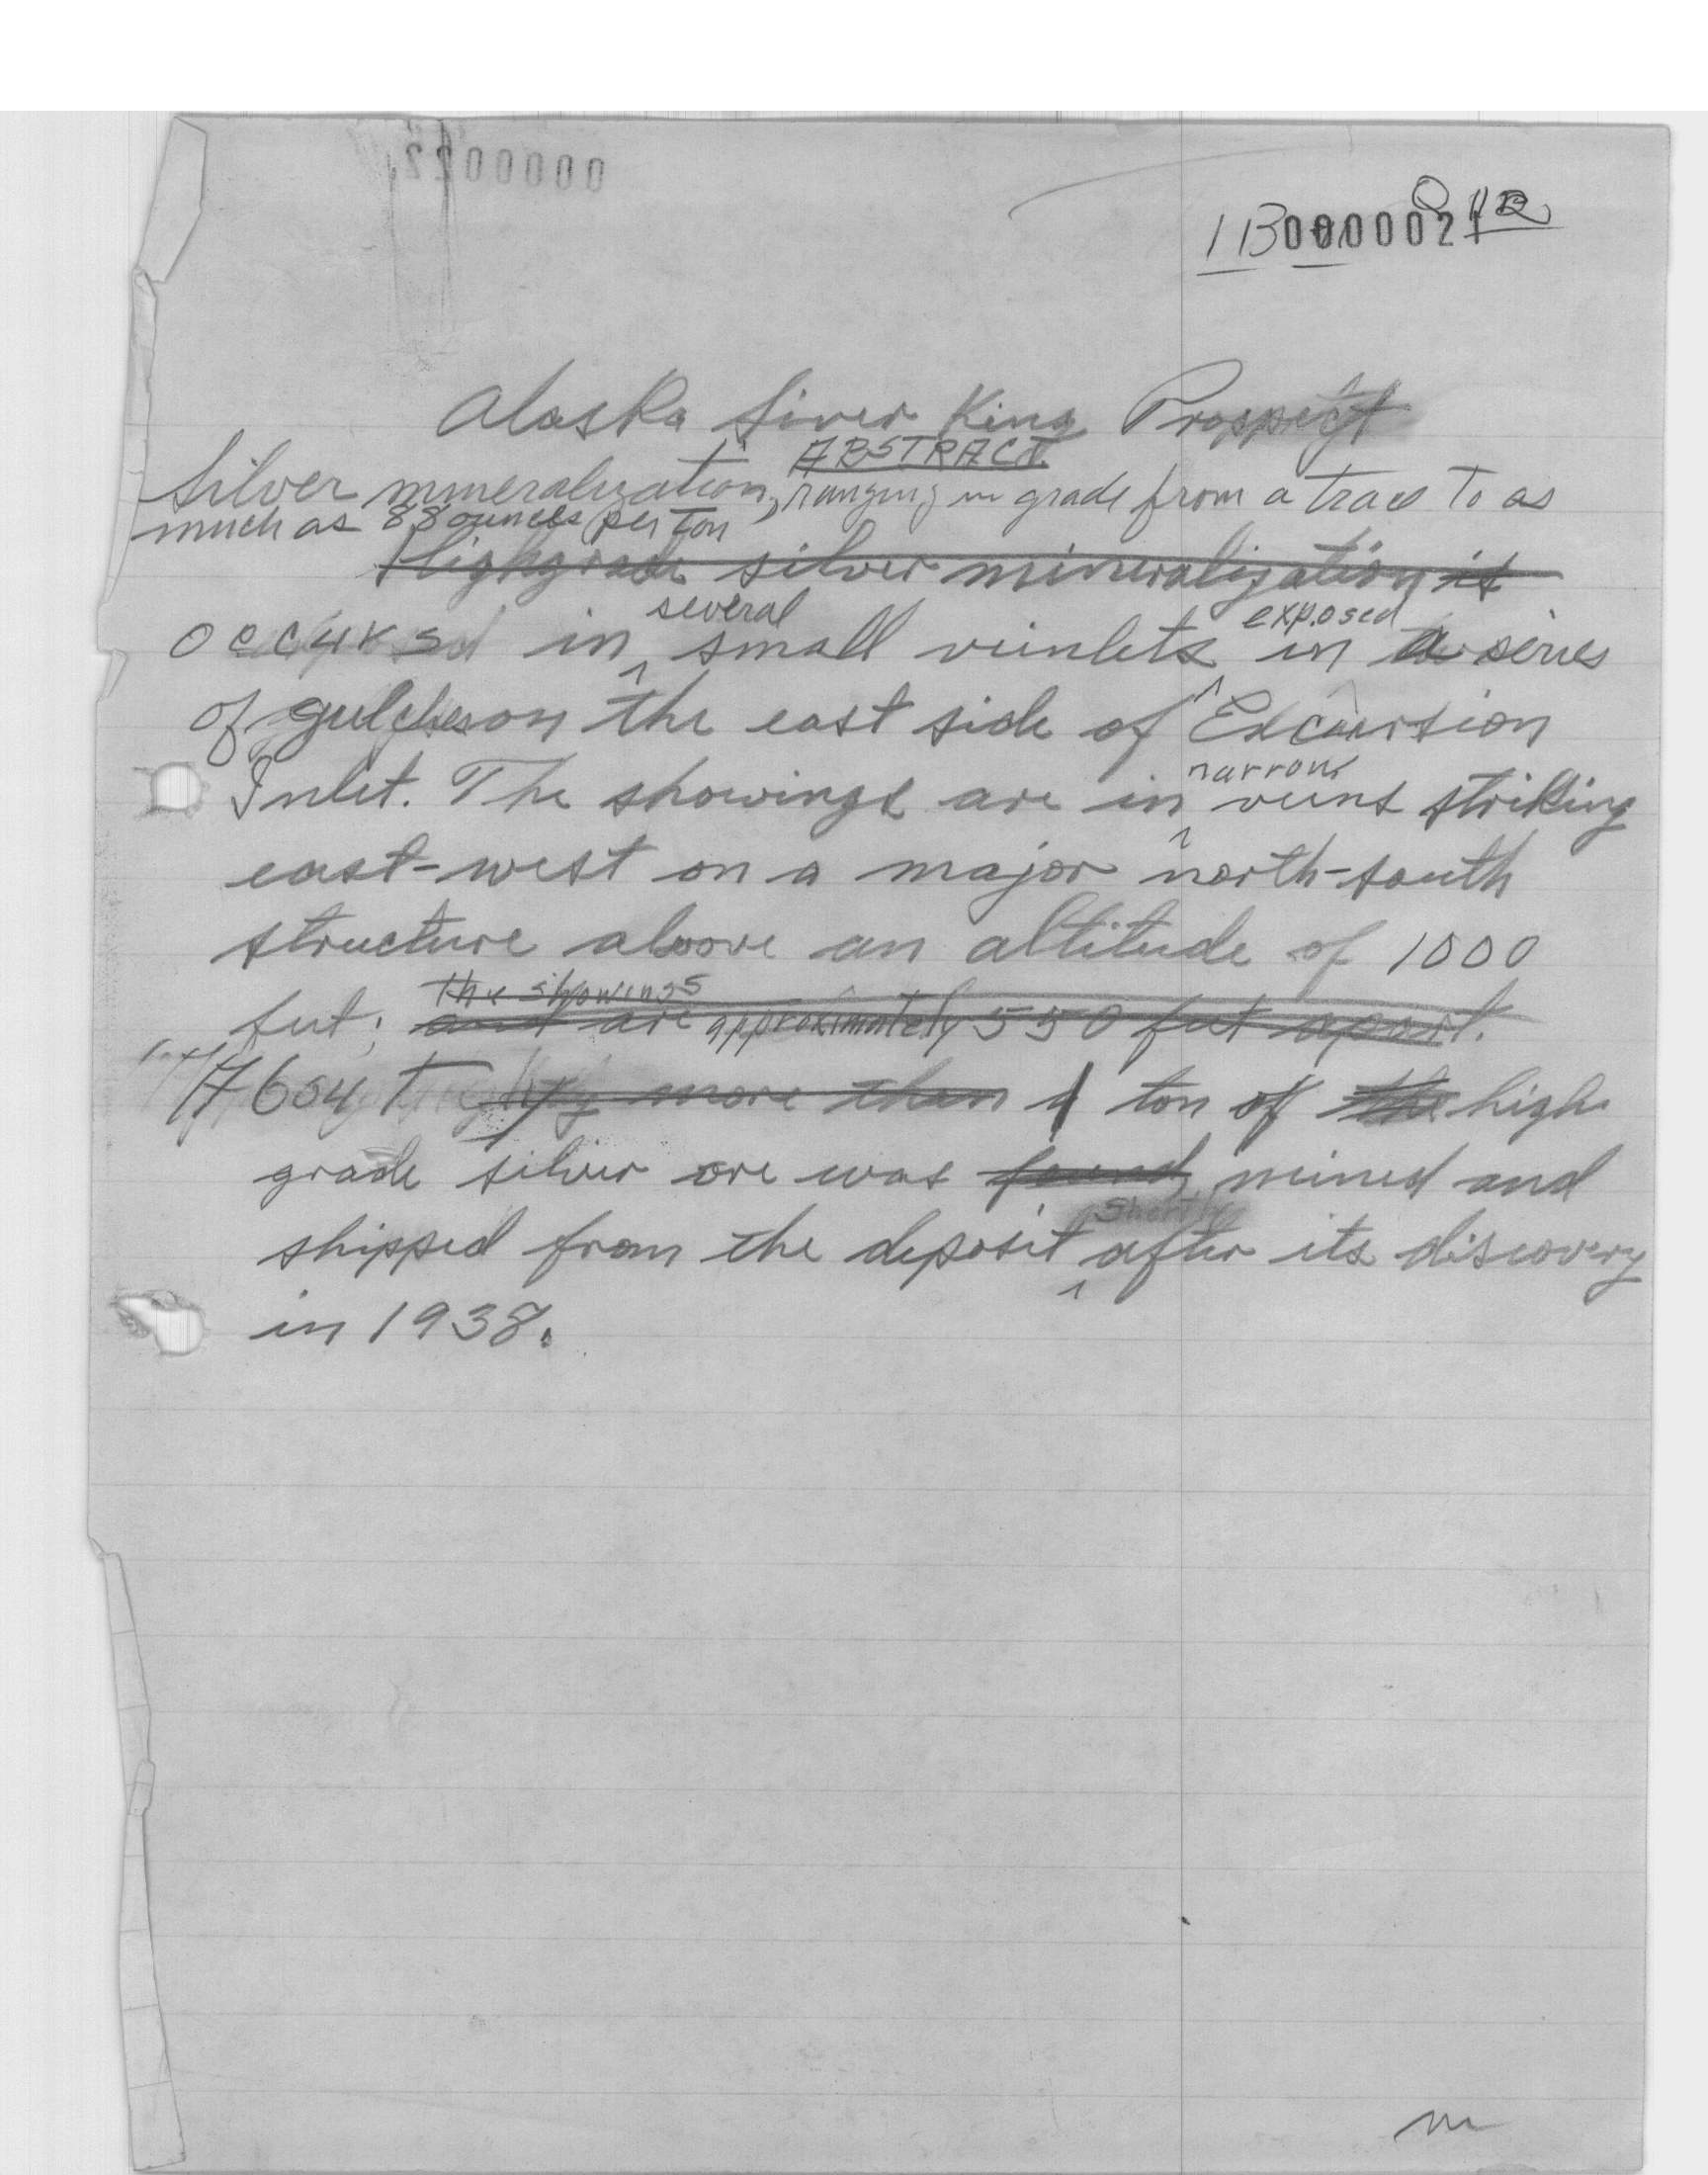 0000022
1B 0000021
Alaska Siver King Prospect
ABSTRACT
Silver mineralization, ranging in grade from a trace to as
much as 88 ounces per ton
Highgrade silver mineralization is
occurs in several small veinlets exposed in a series
of gulches on the east side of Excursion
Inlet. The showings are in narrow veins striking
east-west on a major north-south
structure above an altitude of 1000
feet; the showings and are approximately 550 feet apart.
About more than 1 ton of the high
grade silver ore was found mined and
shipped from the deposit shortly after its discovery
in 1938.
m